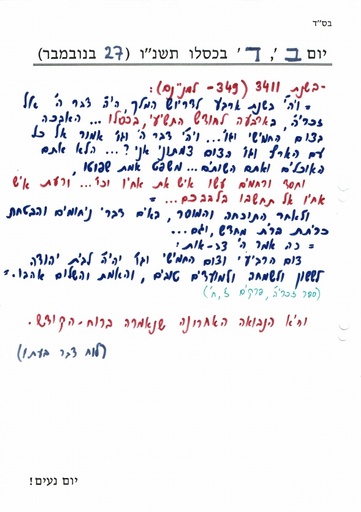 בס"ד
יום ב', ד' בכסלו תשנ"ו (27 בנובמבר)
-בשנת 3411 (349- למנינם):
= ויהי בשנת ארבע לדריוש המלך, היה דבר ה' אל
זכריה, בארבעה לחודש התשיעי, בכסלו... האבכה
בצום החמישי וגו'... ויהי דבר ה' וגו' אמור אל כל
עם הארץ וגו' הצום צמתוני אני?... הלא אתם
האוכלים ואתם השותים... משפט אמת שפוטו,
וחסד ורחמים עשו איש את אחיו וכו'... ורעת איש
אחיו אל תחשבו בלבבכם... =
ולאחר התוכחה והמוסר, באים דברי ניחומים והבטחת
כריתת ברית מחדש,
= כה אמר ה' צב-אות:
צום הרביעי וצום החמישי וגו' יהיה לבית יהודה
לששון ולשמחה ולמועדים טובים, והאמת והשלום אהבו. =
(ספר זכריה, פרקים ז, ח')
והיא הנבואה האחרונה שנאמרה ברוח-הקודש.
(לוח דבר בעתו)
יום נעים!